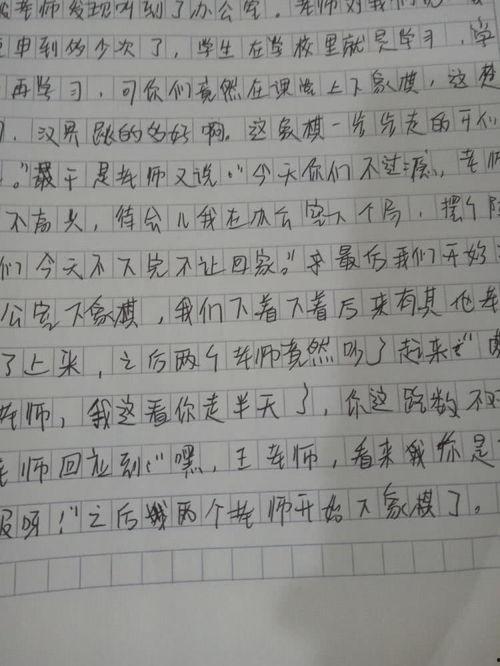 老师发现叫到了办公室。老师对我们说
申到的多少次了，学生在学校里就是学习，学
再学习，可你们竟然在课堂上下象棋，这楚
汉界跳的多好啊。这象棋一步步走的开们
。”于是老师又说：“今天你们不过瘾，老师
不高兴，待会儿我在办公室下个局，摆个阵
们今天不下完不让回家。”来最后我们开始
公室下象棋，我们下着下着后来有其他老
了上来，之后两个老师竟然吵了起来：“
老师，我这看你走半天了，你这路数不对
老师回应到：“嘿，王老师，看来我你是
服呀！”之后两个老师开始下象棋了。